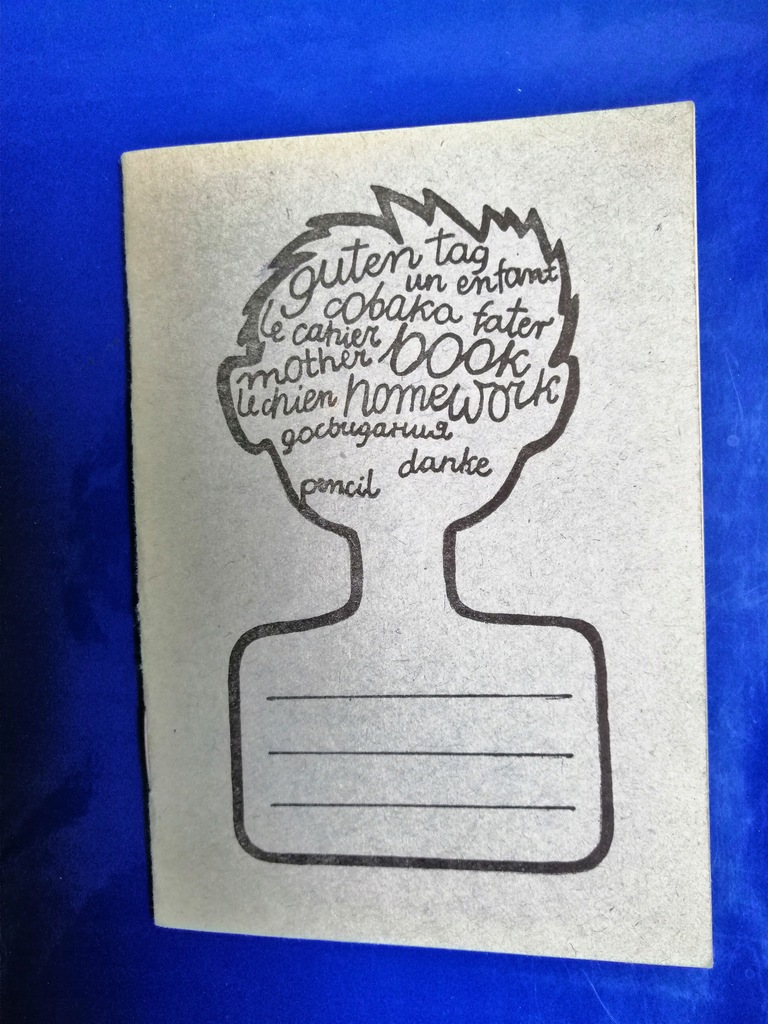 guten tag
un enfant
собака fater
le cahier
mother book
le chien homework
досвидания
danke
pencil